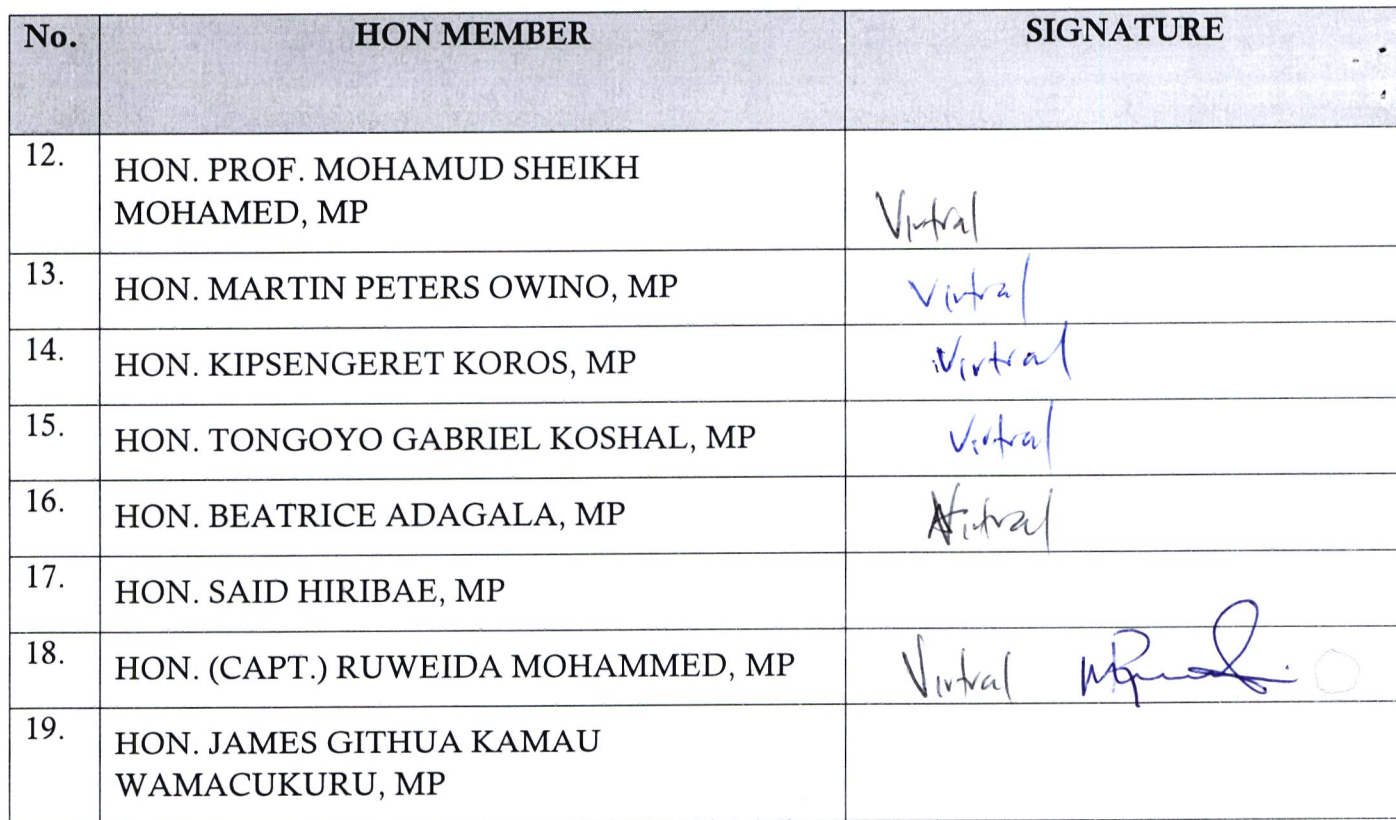 No. HON MEMBER SIGNATURE
12. HON. PROF. MOHAMUD SHEIKH
MOHAMED, MP Virtual
13. HON. MARTIN PETERS OWINO, MP Virtual
14. HON. KIPSENGERET KOROS, MP Virtual
15. HON. TONGOYO GABRIEL KOSHAL, MP Virtual
16. HON. BEATRICE ADAGALA, MP Virtual
17. HON. SAID HIRIBAE, MP
18. HON. (CAPT.) RUWEIDA MOHAMMED, MP Virtual
19. HON. JAMES GITHUA KAMAU
WAMACUKURU, MP